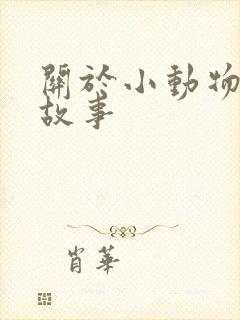 關於小動物
故事
肖華